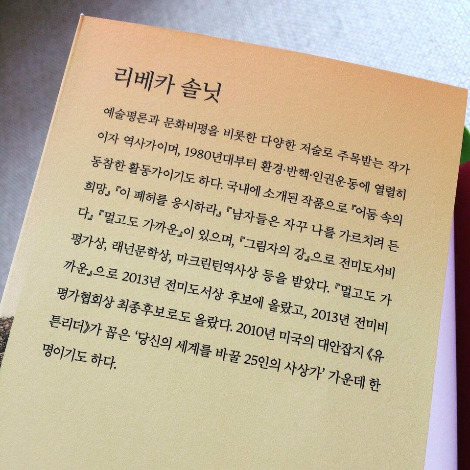 리베카 솔닛
예술평론과 문화비평을 비롯한 다양한 저술로 주목받는 작가
이자 역사가이며, 1980년대부터 환경·반핵·인권운동에 열렬히
동참한 활동가이기도 하다. 국내에 소개된 작품으로 『어둠 속의
희망』 『이 폐허를 응시하라』 『남자들은 자꾸 나를 가르치려 든
다』 『멀고도 가까운』이 있으며, 『그림자의 강』으로 전미도서비
평가상, 래넌문학상, 마크린턴역사상 등을 받았다. 『멀고도 가
까운』으로 2013년 전미도서상 후보에 올랐고, 2013년 전미비
평가협회상 최종후보로도 올랐다. 2010년 미국의 대안잡지 《유
튼리더》가 꼽은 ‘당신의 세계를 바꿀 25인의 사상가’ 가운데 한
명이기도 하다.